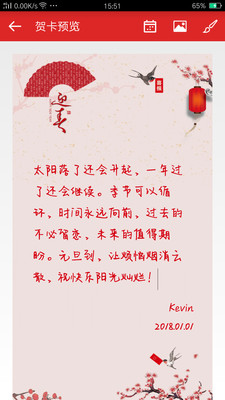 0.00K/s 15:51 65%
贺卡预览
迎春
太阳落了还会升起，一年过
了还会继续。季节可以循
环，时间永远向前，过去的
不必留恋，未来的值得期
盼。元旦到，让烦恼烟消云
散，祝快乐阳光灿烂！
Kevin
2018.01.01